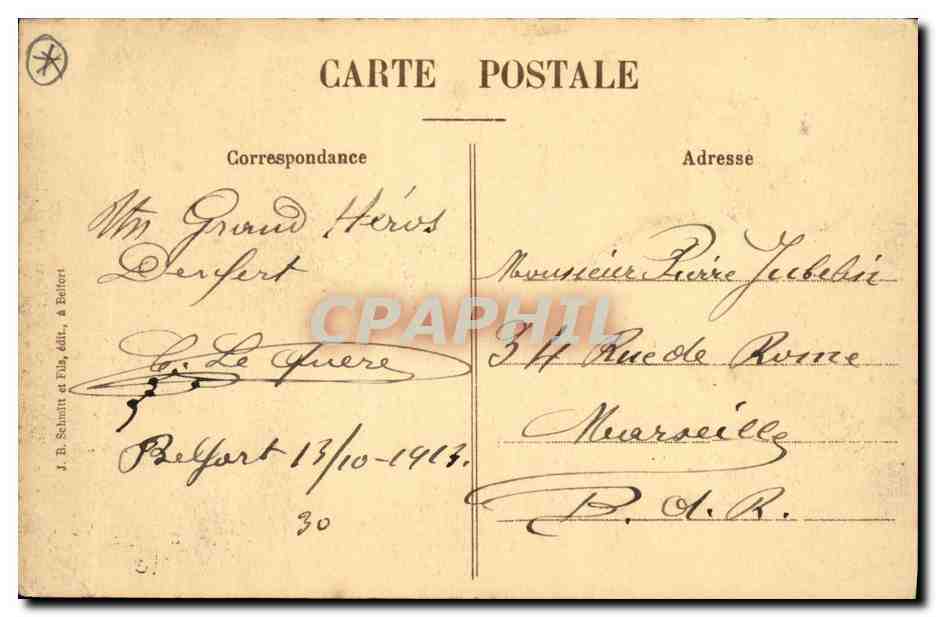 CARTE POSTALE
Correspondance
Un Grand Héros
Denfert
Le Quere
Belfort 13/10-1913.
30
J. B. Schmitt et Fils, édit., à Belfort
Adresse
Monsieur Pierre Jubelin
34 Rue de Rome
Marseille
B. d. R.
CPAPHIL